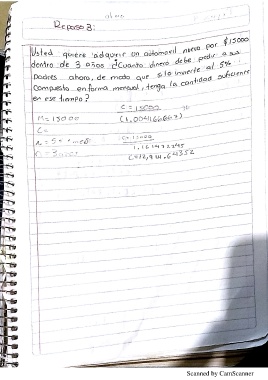 Repaso 3:
Usted quiere adquirir un automovil nuevo por $15000
dentro de 3 años ¿Cuanto dinero debe pedir a sus
padres ahora, de modo que si lo invierte al 5%
compuesto en forma mensual, tenga la cantidad suficiente
en ese tiempo?
C = 15000
M = 15000 (1.004166667)
C=
C = 15000
1.161472245
C = 12,914.64352
Scanned by CamScanner